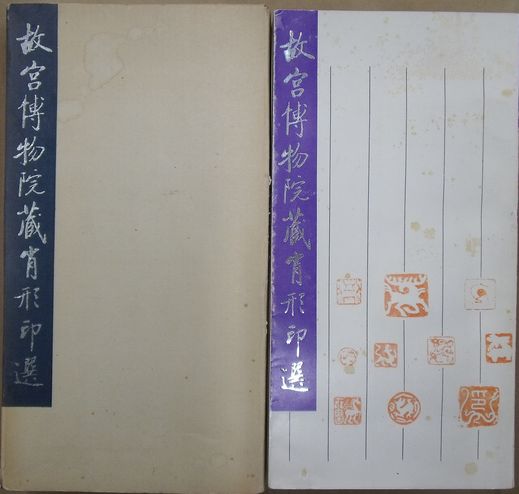 故宮博物院藏肖形印選
故宮博物院藏肖形印選